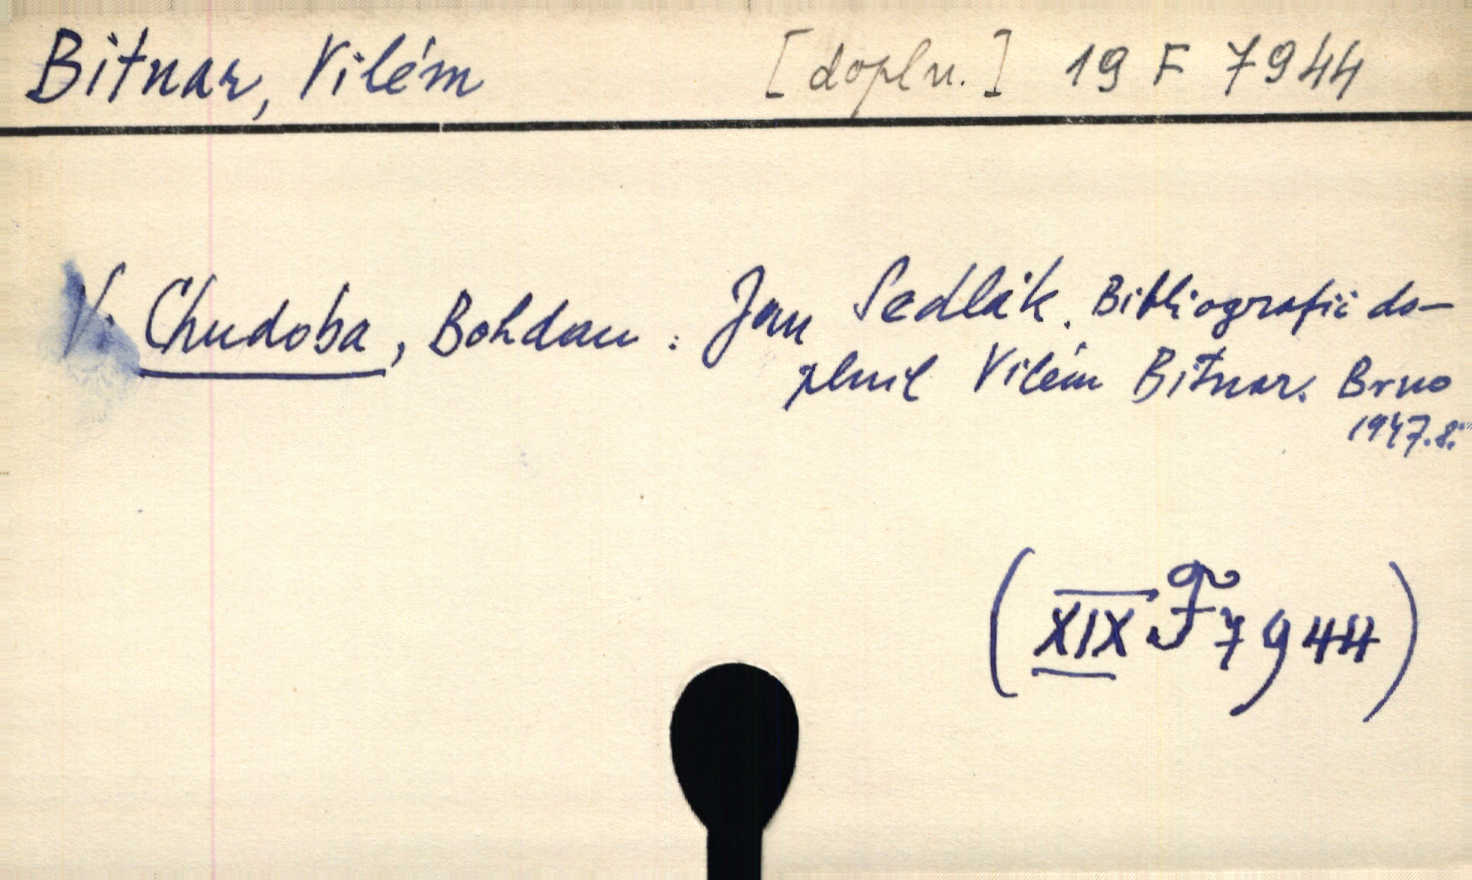 Bitnar, Vilém [dopln.] 19 F 7944
V. Chudoba, Bohdan : Jan Sedlák. Bibliografii do-
plnil Vilém Bitnar. Brno
1947. 8°
(XIX F 7944)